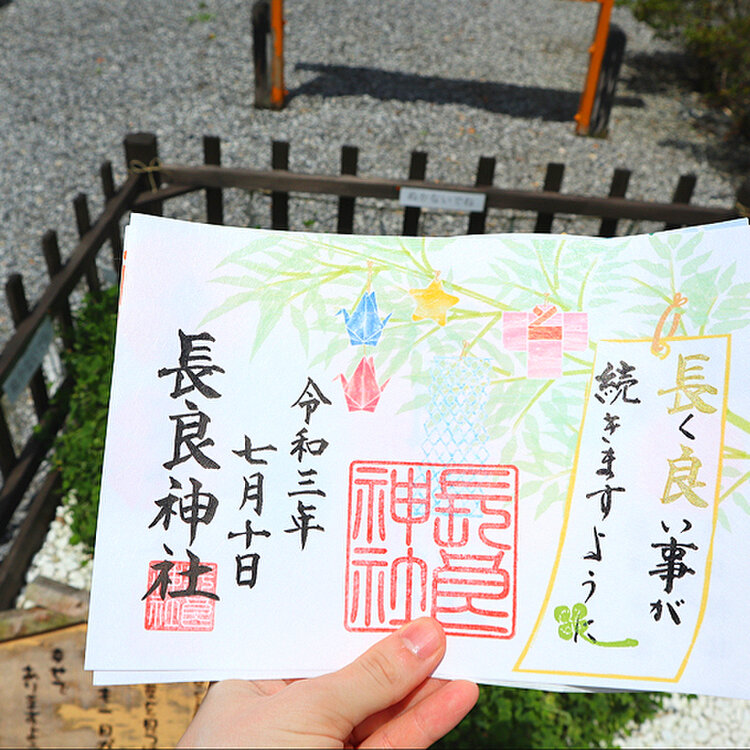 長く良い事が
続きますように
長良神社
令和三年
七月十日
長良神社
ぬかないでね